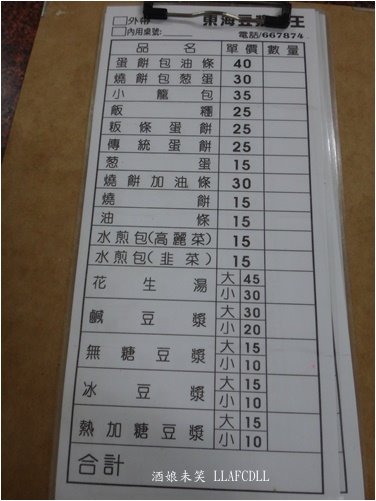 □外帶
□內用桌號:
東海豆漿 王
電話/667874
品名 單價 數量
蛋餅包油條 40
燒餅包葱蛋 30
小籠包 35
飯糰 25
粄條蛋餅 25
傳統蛋餅 25
葱蛋 15
燒餅加油條 30
燒餅 15
油條 15
水煎包(高麗菜) 15
水煎包(韭菜) 15
花生湯 大 45
小 30
鹹豆漿 大 30
小 20
無糖豆漿 大 15
小 10
冰豆漿 大 15
小 10
熱加糖豆漿 大 15
小 10
合計
酒娘未笑 LLAFCDLL